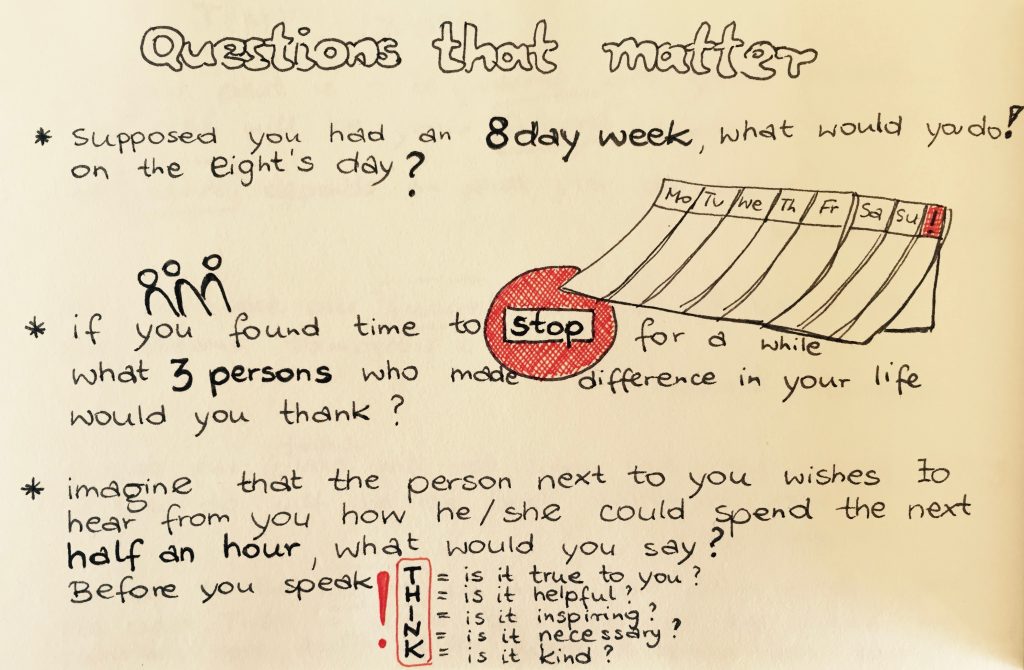 Questions that matter
* Supposed you had an 8 day week, what would you do!
on the eight's day?
Mo Tu We Th Fr Sa Su !
* if you found time to stop for a while
what 3 persons who made difference in your life
would you thank?
* imagine that the person next to you wishes to
hear from you how he/she could spend the next
half an hour, what would you say?
Before you speak! T = is it true to you?
H = is it helpful?
I = is it inspiring?
N = is it necessary?
K = is it kind?